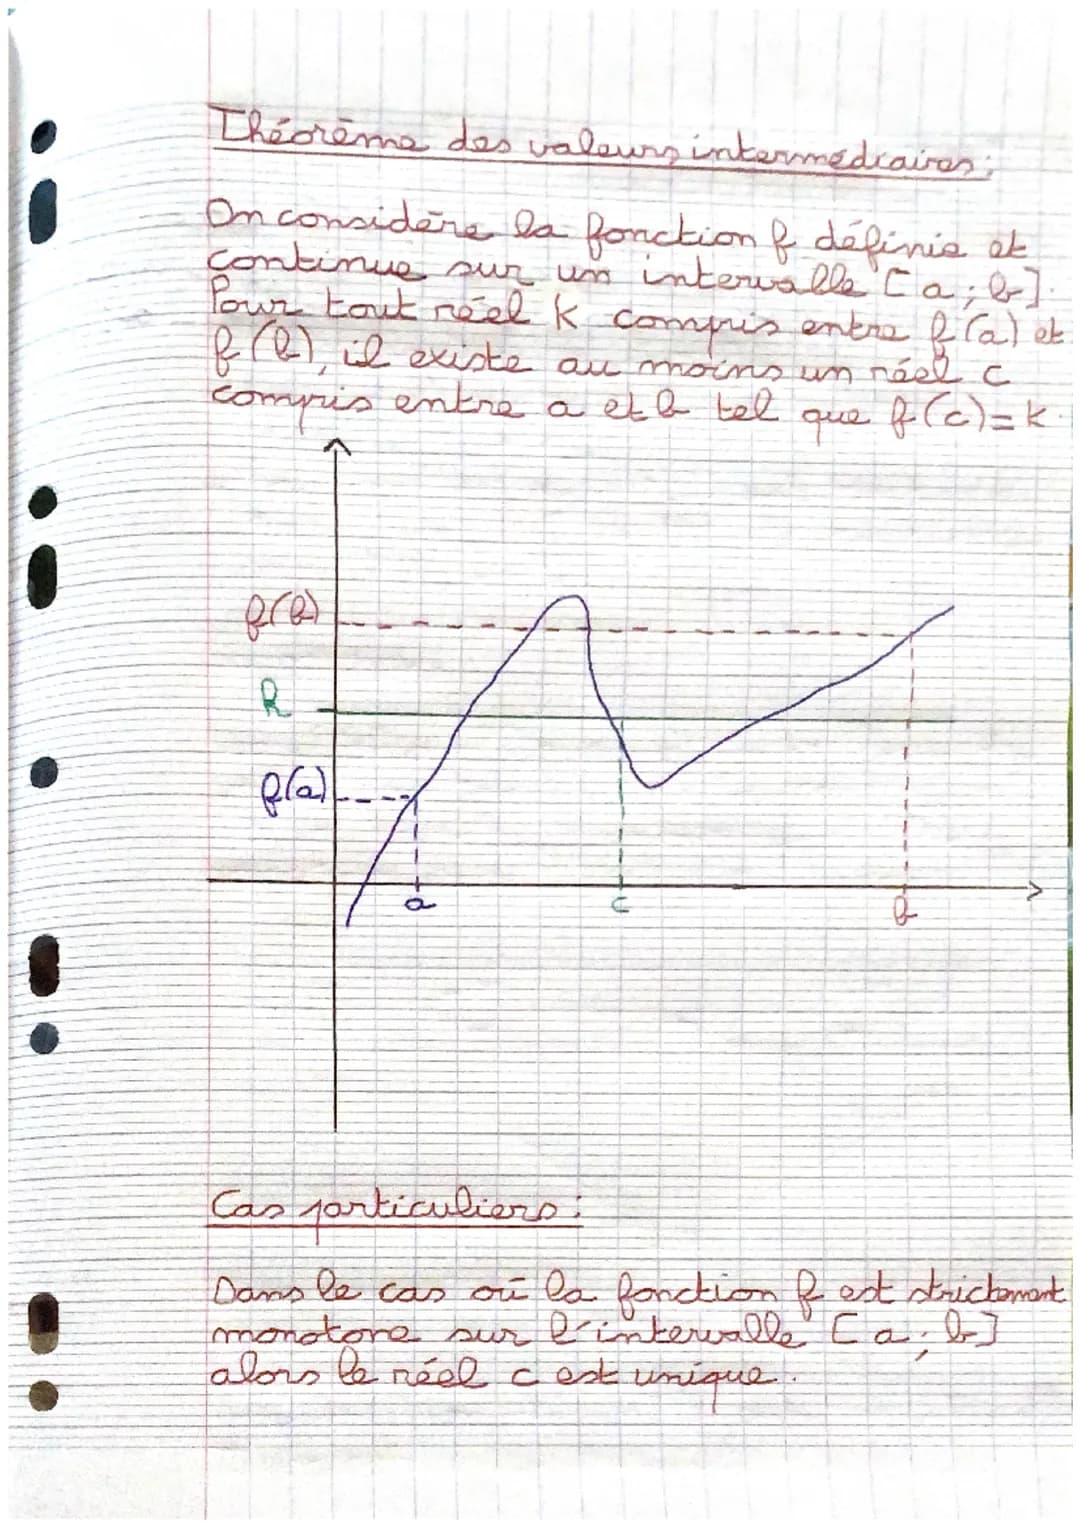 Théorème des valeurs intermédiaires:
On considère la fonction f définie et
continue sur un intervalle [a; b].
Pour tout réel k compris entre f(a) et
f(b), il existe au moins un réel c
compris entre a et b tel que f(c)=k.
f(b)
k
f(a)
a c b
Cas particuliers:
Dans le cas où la fonction f est strictement
monotone sur l'intervalle [a; b]
alors le réel c est unique.